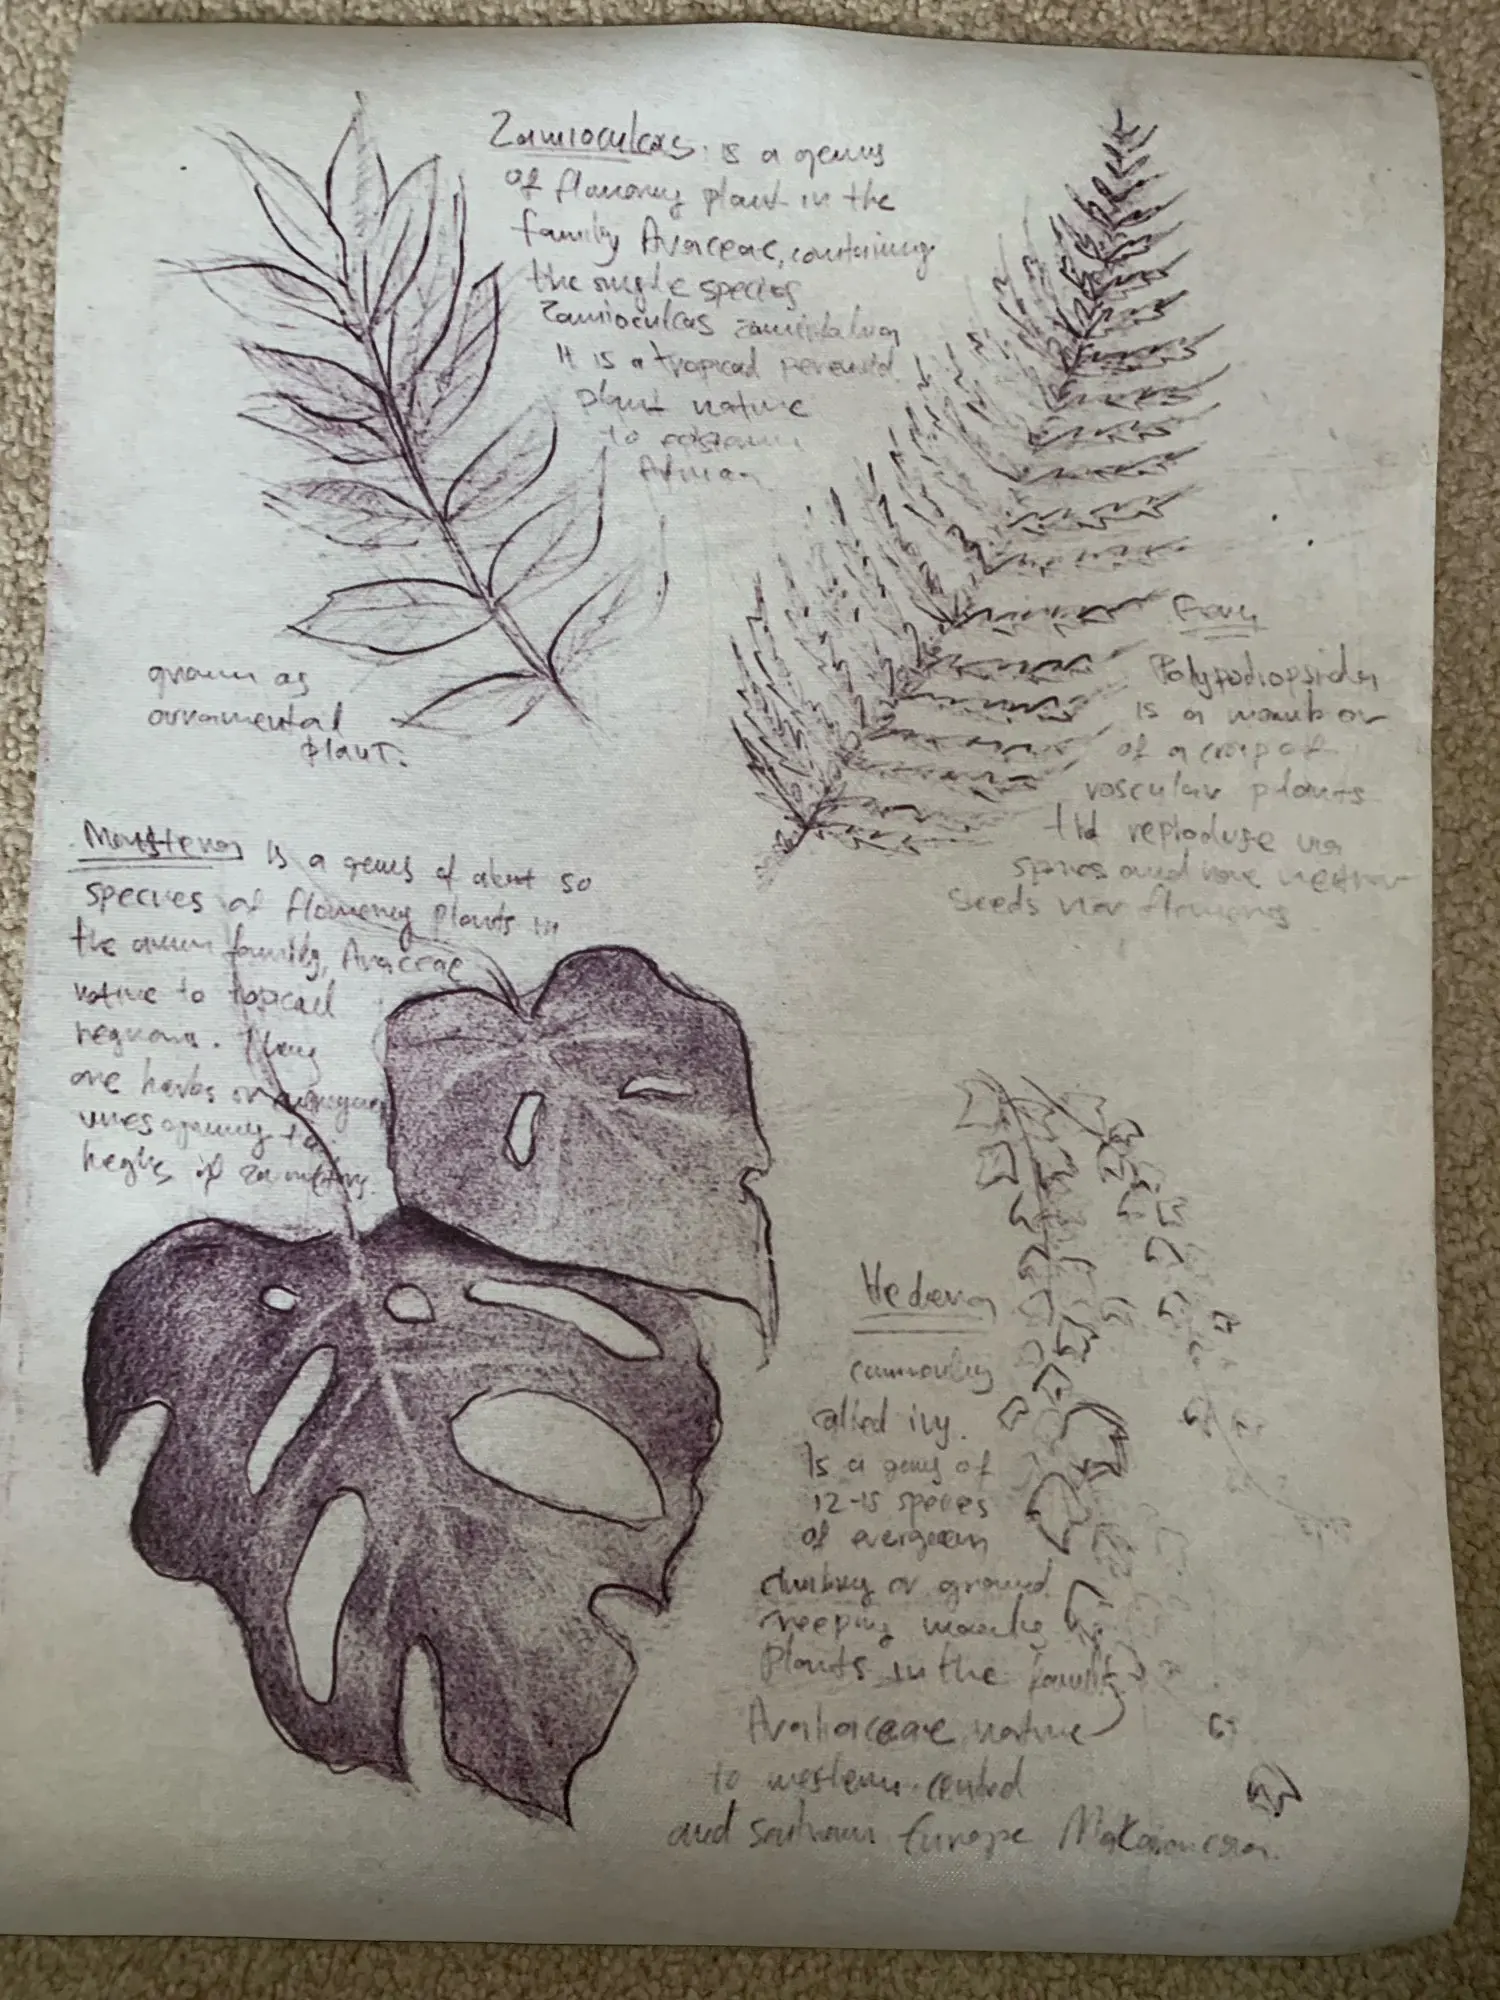 Zamioculcas is a genus
of flowering plant in the
family Araceae, containing
the single species
Zamioculcas
It is a tropical perennial
plant native
to eastern
grown as
ornamental
plant.
Fern
Polypodiopsida
is a member
of a group of
vascular plants
reproduce via
spores and have neither
seeds nor flowers
Monstera is a genus of about 50
species of flowering plants in
the arum family, Araceae
native to tropical
regions. They
are herbs or evergreen
vines growing to
heights of 20 meters.
Hedera
commonly
called ivy.
Is a genus of
12-15 species
of evergreen
climbing or ground
creeping woody
plants in the family
Araliaceae, native
to western, central
and southern Europe Makaronesia.